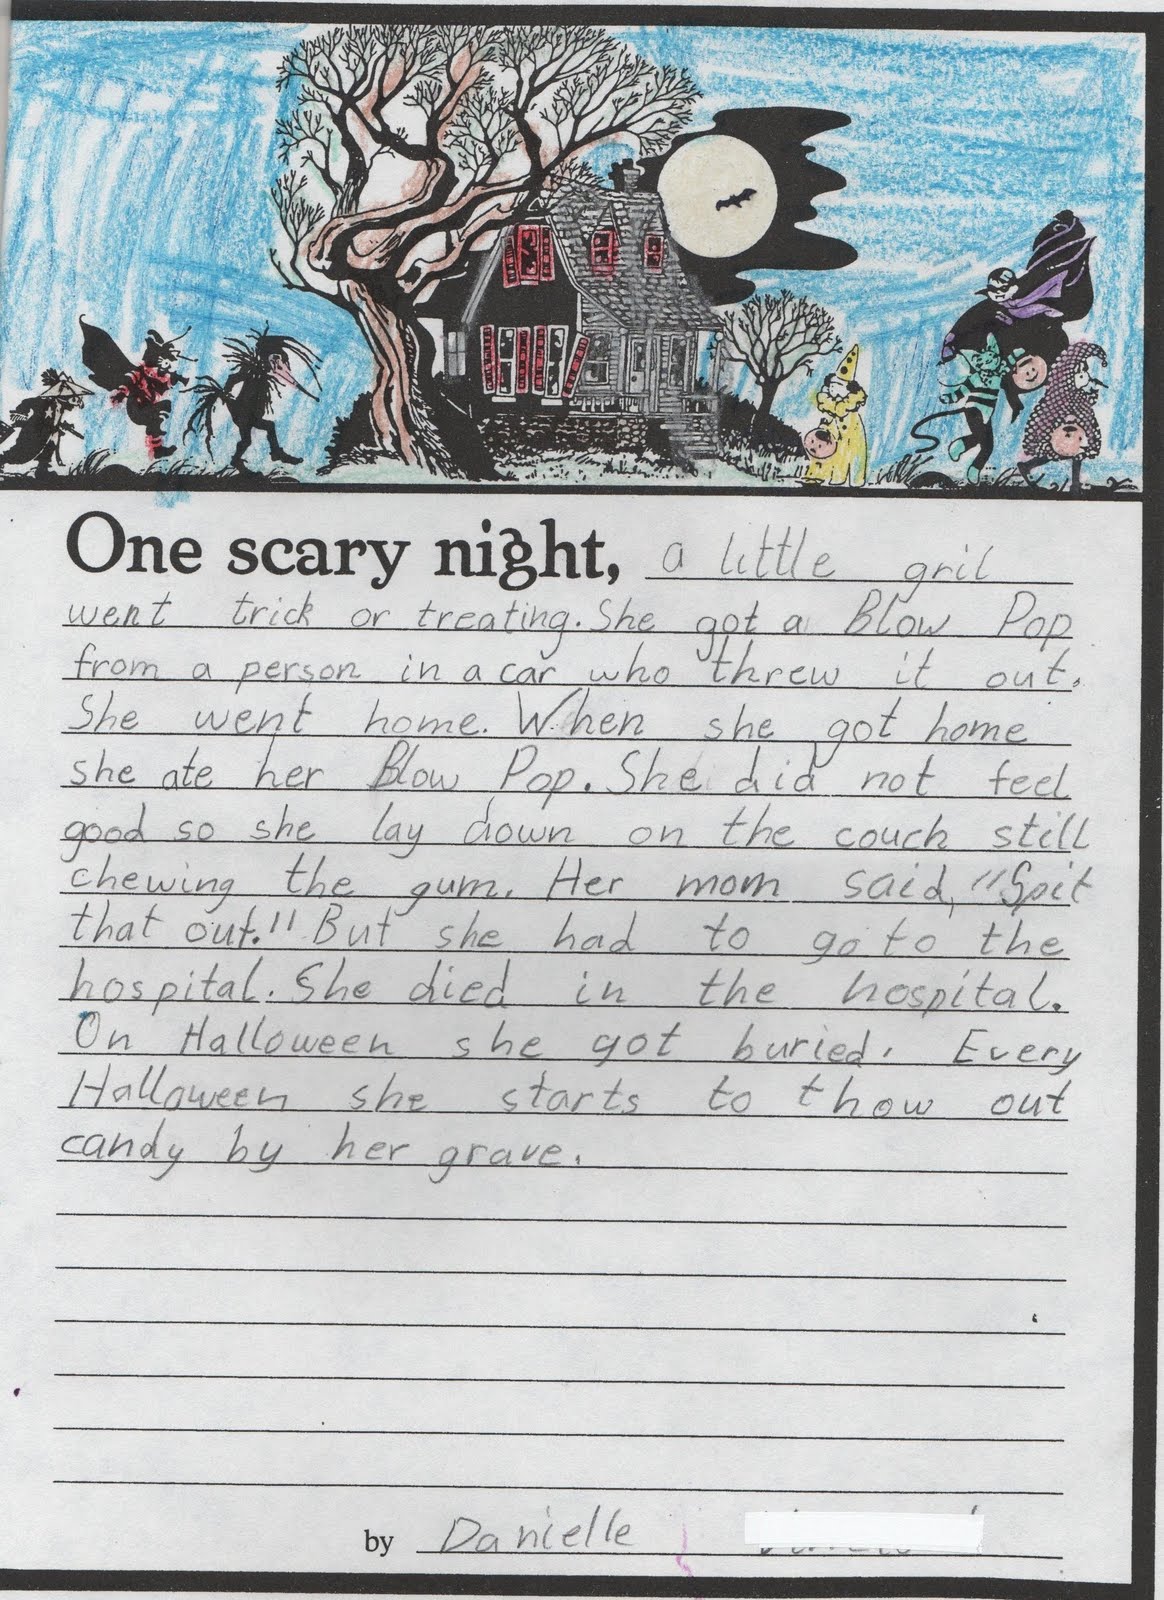 One scary night, a little gril
went trick or treating. She got a Blow Pop
from a person in a car who threw it out.
She went home. When she got home
she ate her Blow Pop. She did not feel
good so she lay down on the couch still
chewing the gum. Her mom said, "Spit
that out." But she had to go to the
hospital. She died in the hospital.
On Halloween she got buried. Every
Halloween she starts to thow out
candy by her grave.
by Danielle